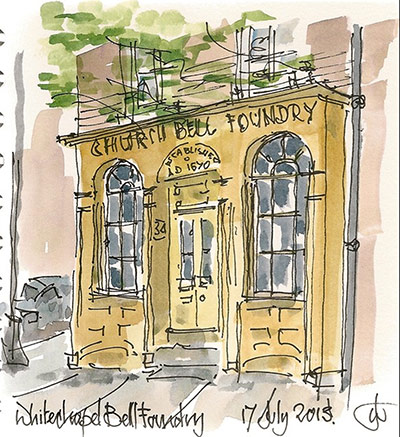 CHURCH BELL FOUNDRY
ESTABLISHED
AD 1570
34
Whitechapel Bell Foundry 17 July 2013.